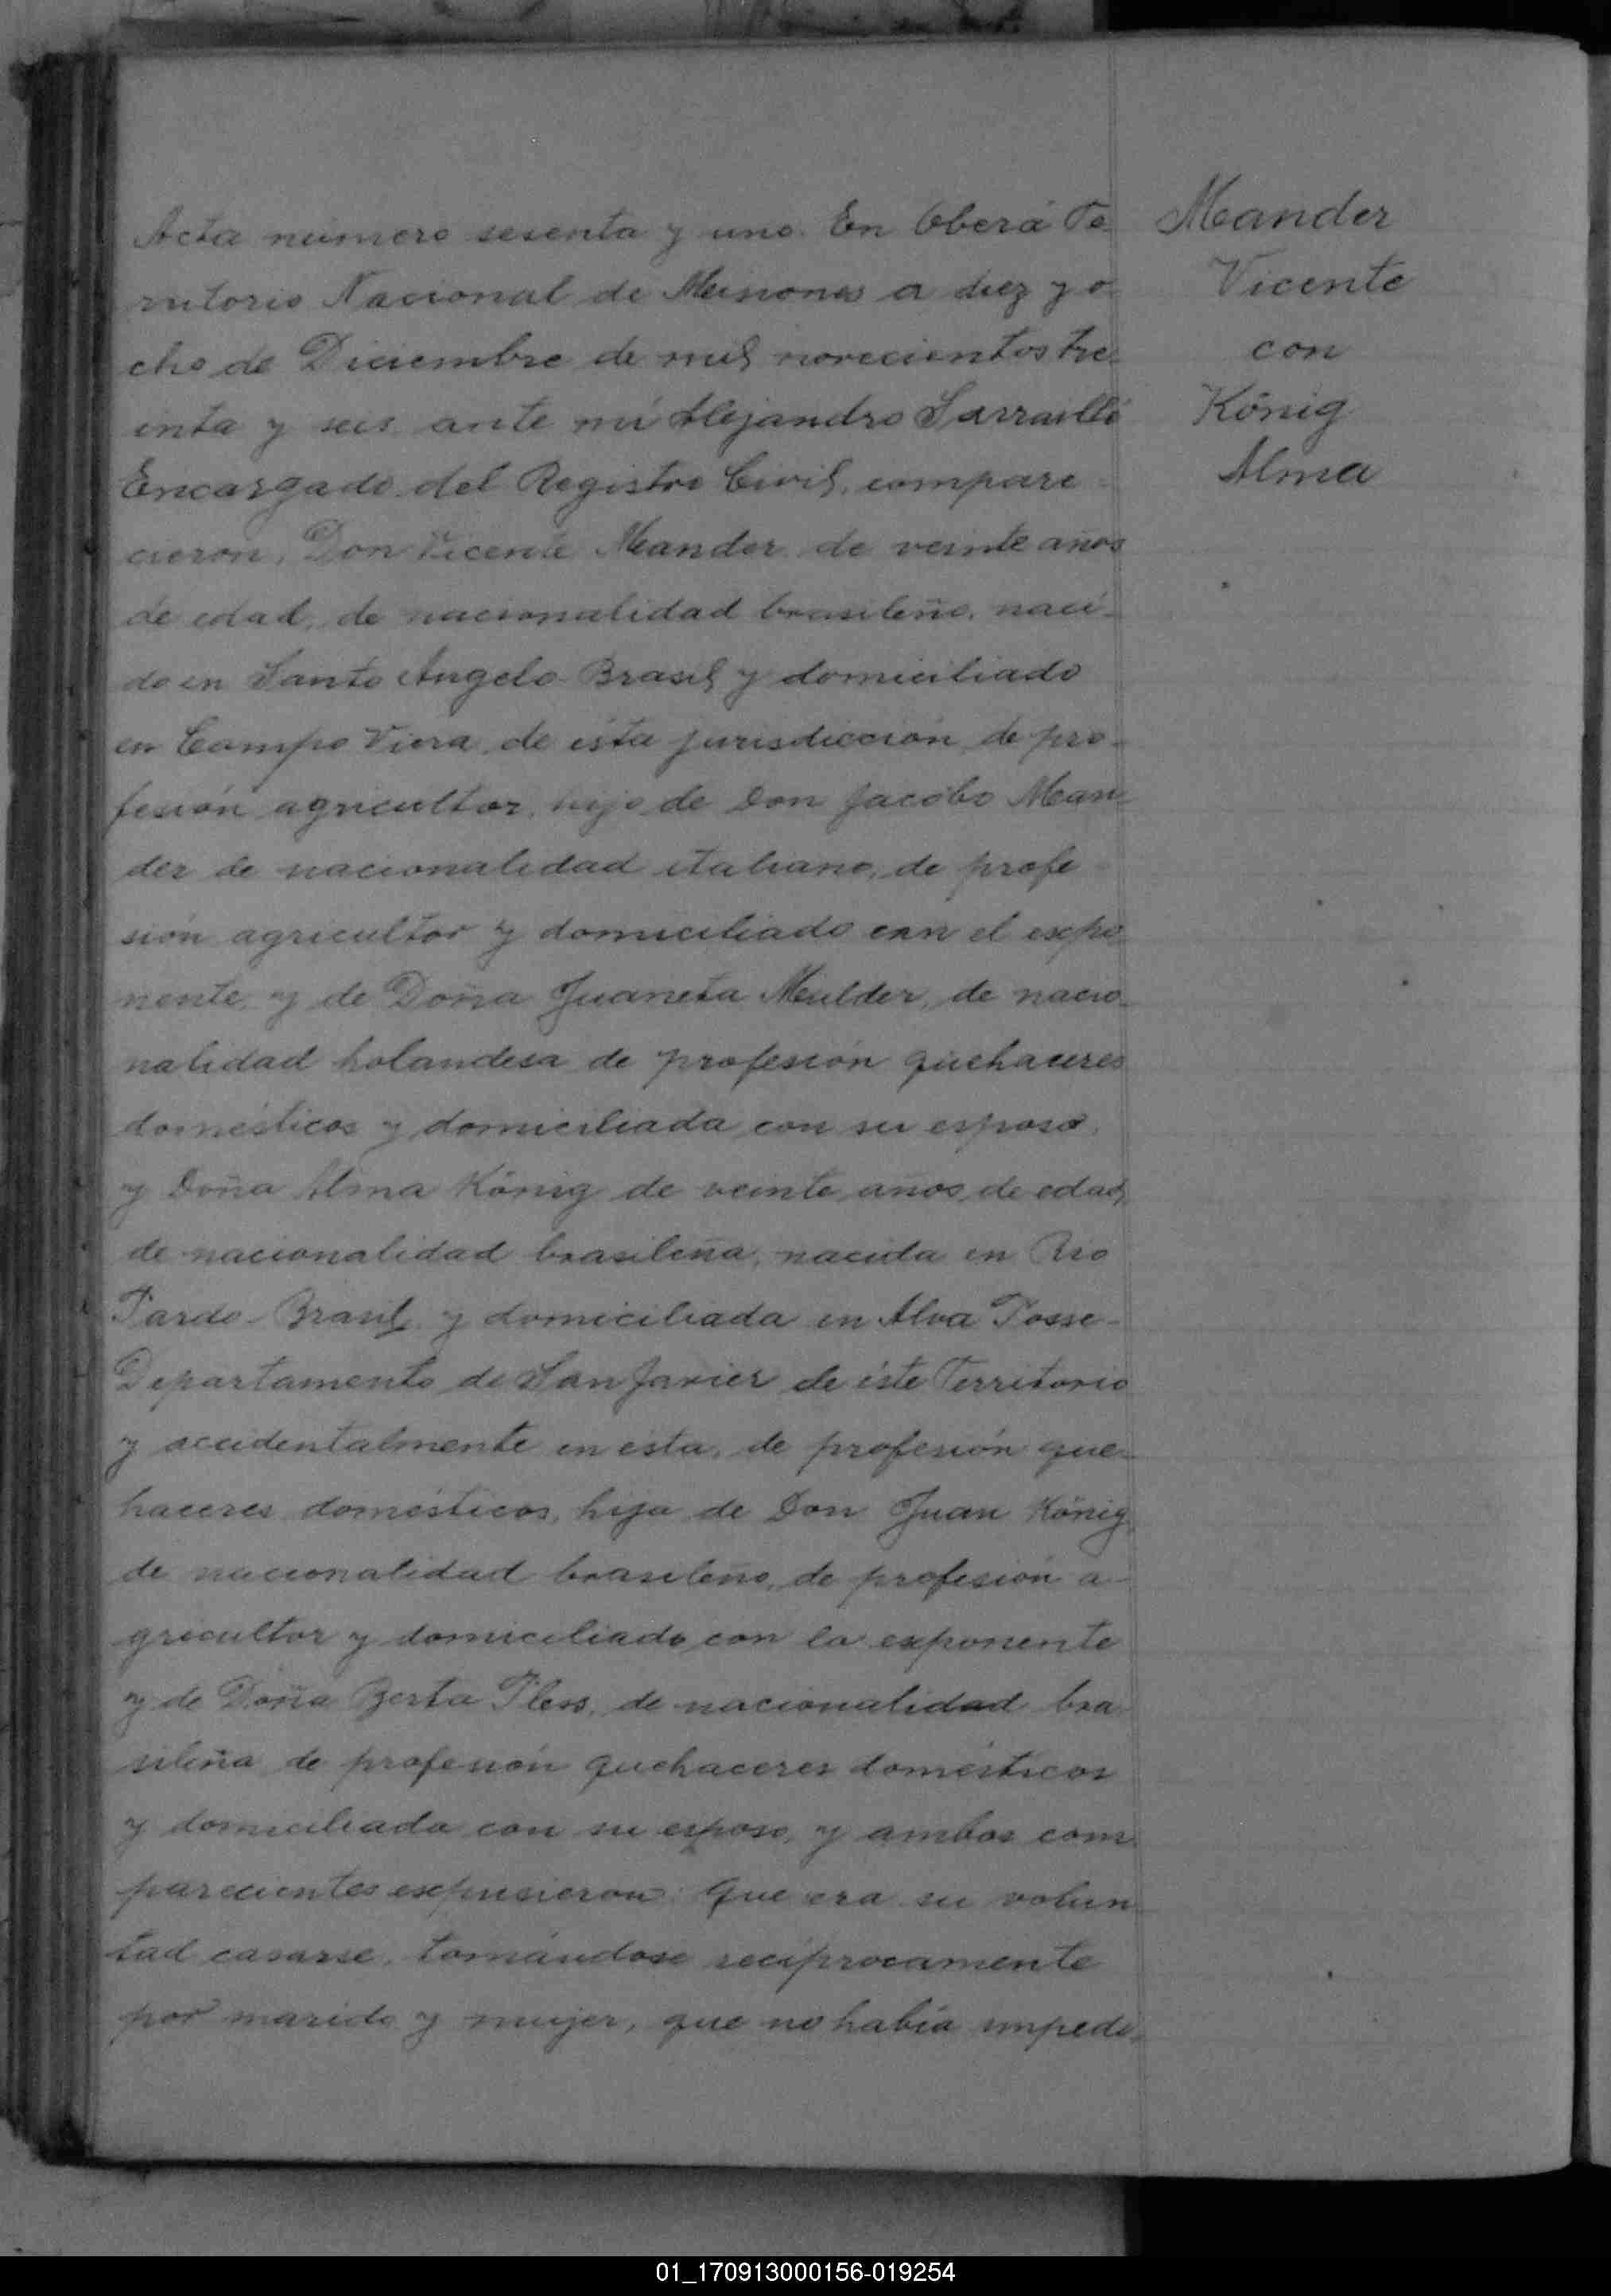 Acta número sesenta y uno. En Oberá Te-
rritorio Nacional de Misiones a diez y o-
cho de Diciembre de mil novecientos tre-
inta y seis ante mí Alejandro
Encargado del Registro Civil, compare-
cieron, Don Vicente Meander de veinte años
de edad, de nacionalidad brasileño, naci-
do en Santo Angelo Brasil y domiciliado
en Campo Viera de ésta jurisdicción, de pro-
fesión agricultor, hijo de Don Jacobo Mean-
der de nacionalidad italiano, de profe-
sión agricultor y domiciliado con el expo-
nente, y de Doña Juaneta Meulder, de nacio-
nalidad holandesa de profesión quehaceres
domésticos y domiciliada con su esposo,
y Doña Alma König de veinte años de edad,
de nacionalidad brasileña, nacida en Rio
Pardo-Brasil y domiciliada en Alva Posse-
Departamento de San Javier de éste Territorio
y accidentalmente en ésta, de profesión que-
haceres domésticos, hija de Don Juan König
de nacionalidad brasileño, de profesión a-
gricultor y domiciliado con la exponente
y de Doña Berta Pless, de nacionalidad bra-
sileña de profesión quehaceres domésticos
y domiciliada con su esposo, y ambos com-
parecientes expusieron: Que era su volun-
tad casarse, tomándose recíprocamente
por marido y mujer, que no había impedi-
Meander
Vicente
con
König
Alma
01_170913000156-019254